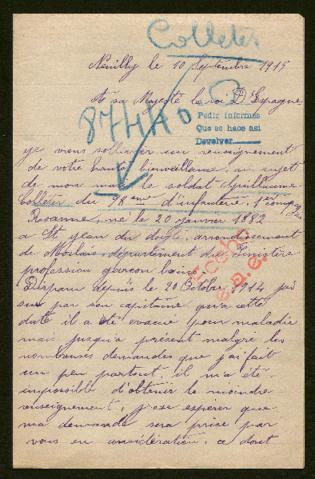 Colleter
Neuilly le 10 Septembre 1915
A sa Majesté le roi D'Espagne
87440
Pedir informes
Que se hace asi
Devolver
je viens solliciter un renseignement
de votre haute bienveillance, au sujet
de mon mari le soldat Guillaume
Colleter du 98eme d'infanterie, 1er comp
Roanne, né le 20 janvier 1882
a St jean du doigt, arrondissement
de Morlaix département du Finistère
profession garcon
Disparu depuis le 20 Octobre 1914
sus par son capitaine qu'a cette
date il a été évacué pour maladie
mais jusqu'a présent malgré les
nombreuses demandes que j'ai fait
un peu partout il m'a été
impossible d'obtenir le moindre
renseignement, j'ose espérer que
ma demande sera prise par
vous en considération, ce dont